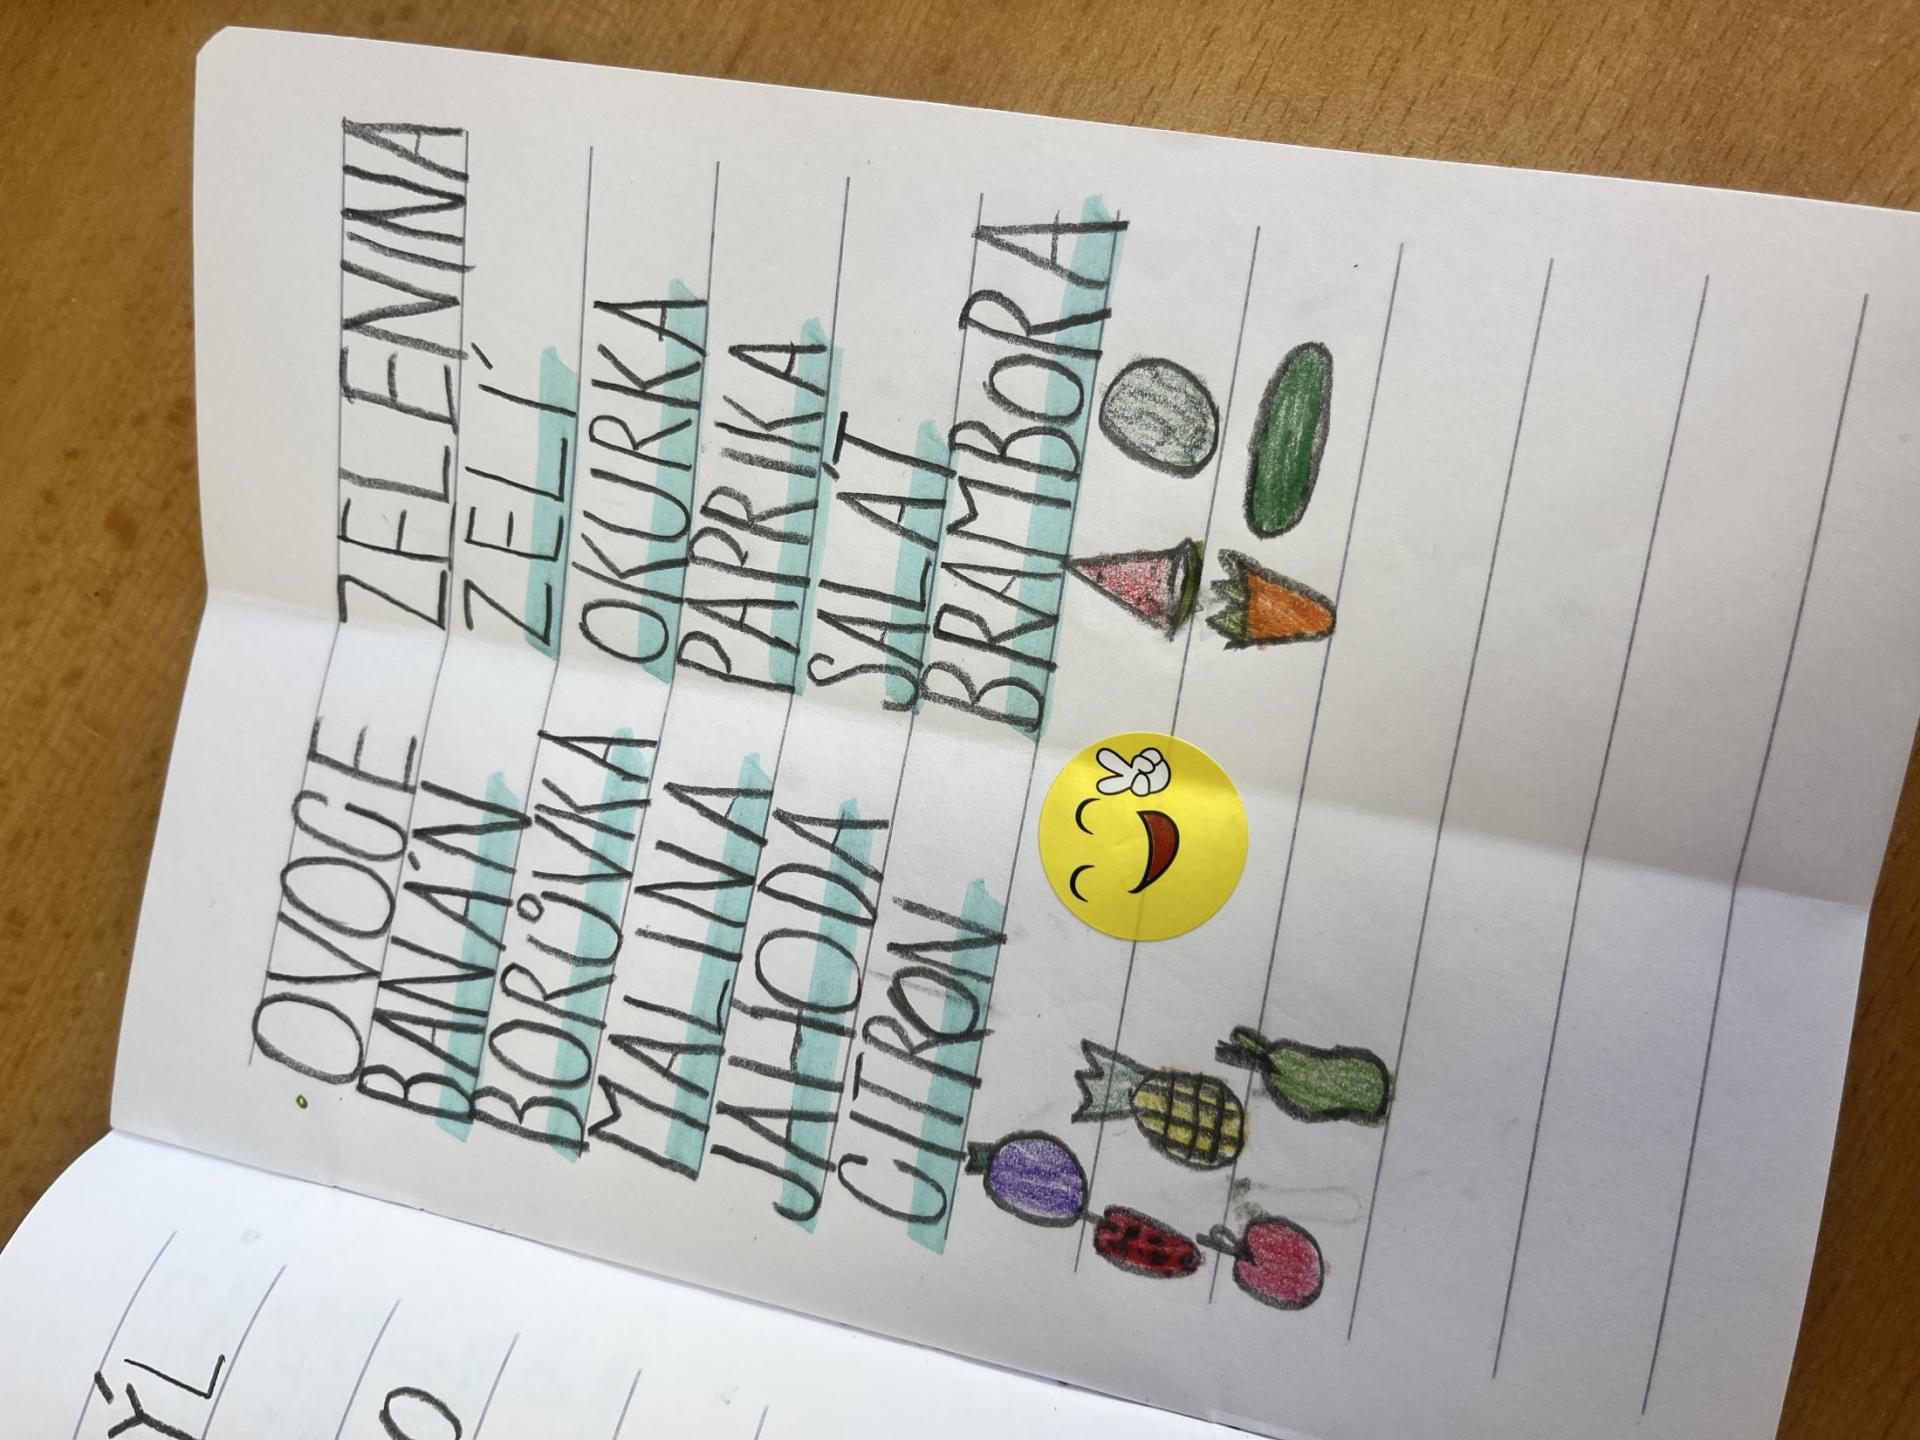 OVOCE ZELENINA
BANÁN ZELÍ
BORŮVKA OKURKA
MALINA PAPRIKA
JAHODA SALÁT
CITRON BRAMBORA
ÝL
O